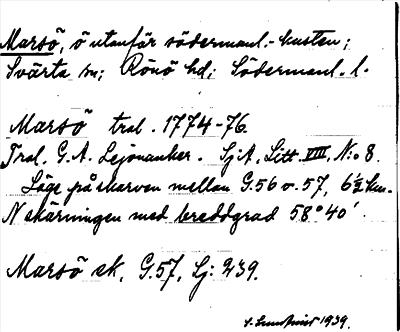 Marsö, ö utanför södermanl.-kusten;
Svärta sn; Rönö hd; Södermanl. l.
Marsö tral. 1774-76.
Tral. G. A. Lejonanker. SjA, Litt. VIII, N:o 8.
Läge på skarven mellan G.56 o. 57, 6½ km.
N skärningen med breddgrad 58°40'.
Marsö sk, G.57, Sj: 239.
S. Lundqvist 1939.